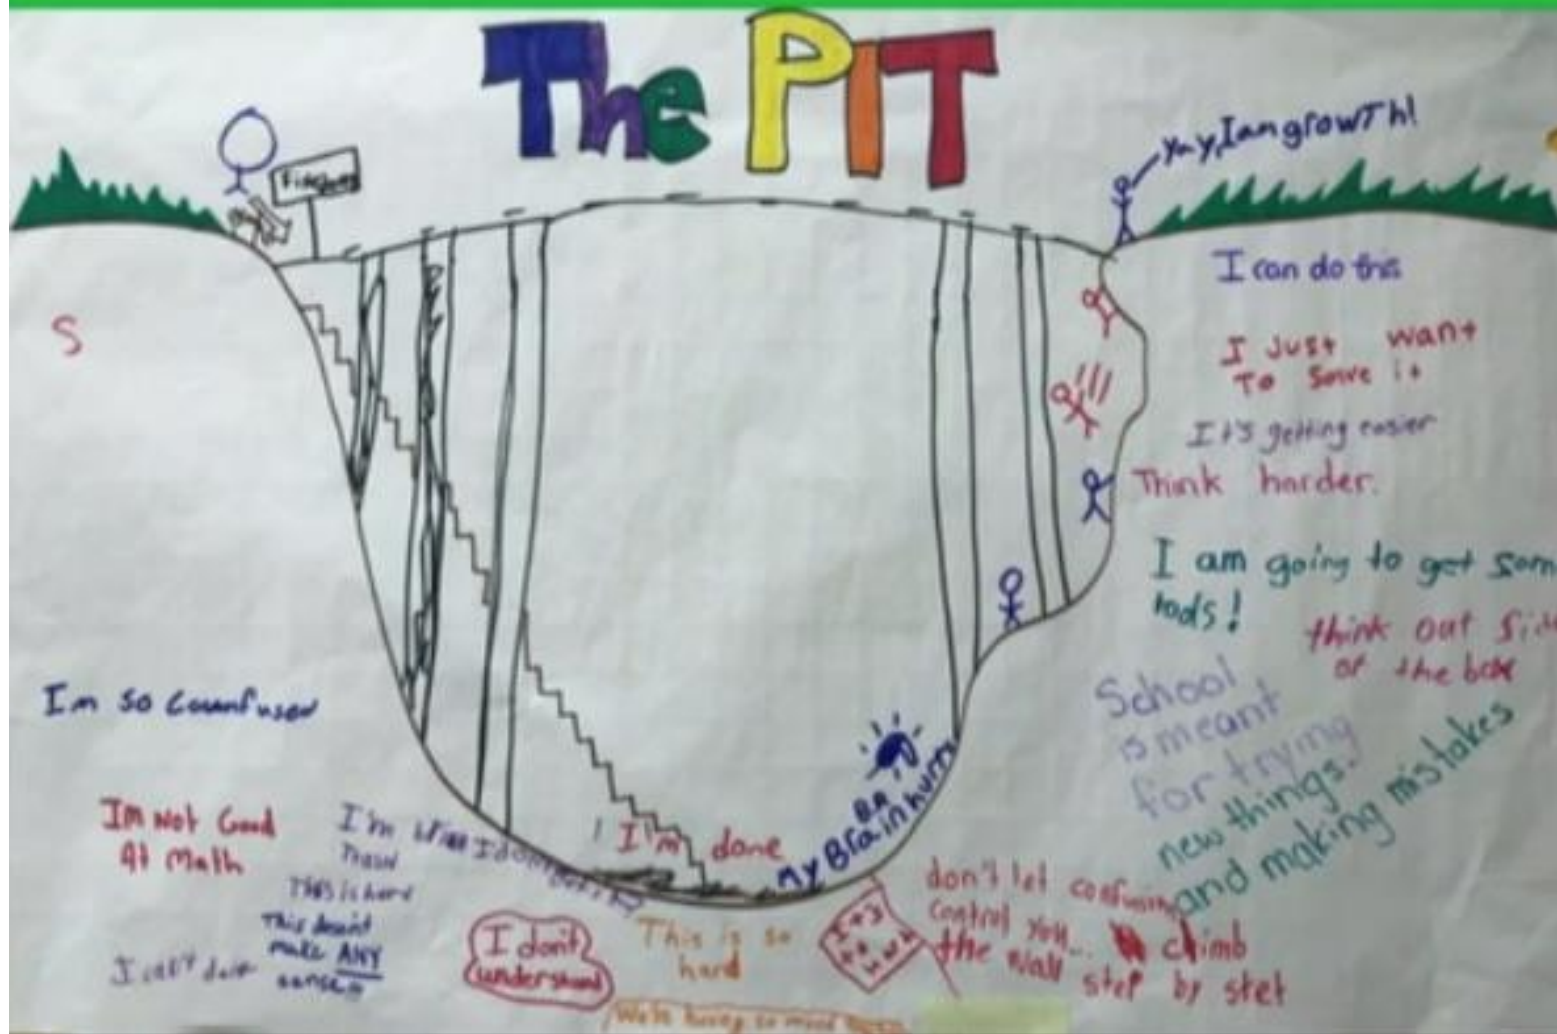 The PIT
yay, I am growTh!
I can do this
S
I Just want
To solve it
It's getting easier
Think harder.
I am going to get som
tools!
think out Sid
of the box
School
is meant
for trying
new things.
and making mistakes
Im so counfused
Im Not Good
At Math
I'm
This is hard
This doesn't
make ANY
sense
I can't do it
I don't
understand
This is so
hard
I'm done
My Brain hurts
don't let confusion
control you...
climb
the wall step by stet
We're having so much